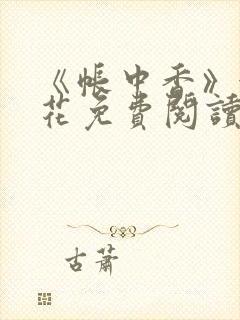 《帳中香》
花免費閱讀
古蕭